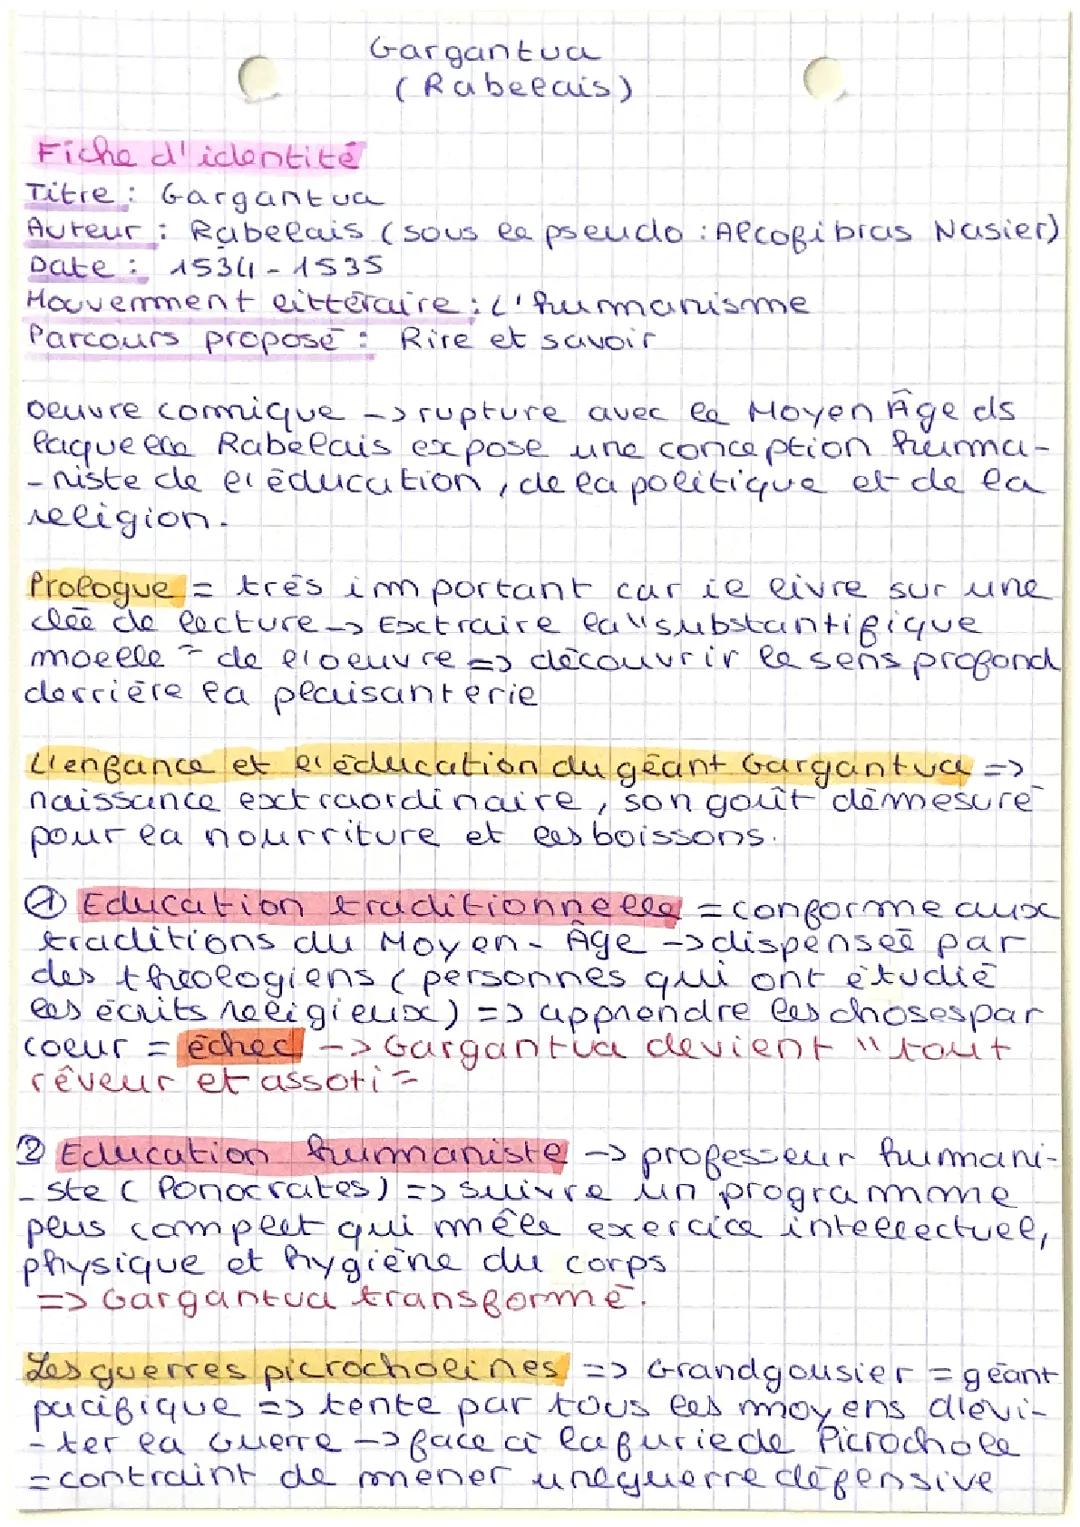 Gargantua
(Rabelais)
Fiche d'identité
Titre : Gargantua
Auteur : Rabelais (sous le pseudo : Alcofibras Nasier)
Date : 1534-1535
Mouvemment littéraire : L'humanisme
Parcours proposé : Rire et savoir
oeuvre comique -> rupture avec le Moyen Âge ds
laquelle Rabelais expose une conception huma-
-niste de l'éducation, de la politique et de la
religion.
Prologue = très important car il livre sur une
clée de lecture -> Esctraire la "substantifique
moelle" de l'oeuvre => découvrir le sens profond
derrière la plaisanterie
L'enfance et l'éducation du géant Gargantua =>
naissance extraordinaire, son goût démesuré
pour la nourriture et les boissons.
① Education traditionnelle = conforme aux
traditions du Moyen-Âge -> dispenseé par
des théologiens (personnes qui ont étudié
les écrits religieux) => apprendre les choses par
coeur = échec -> Gargantua devient "tout
rêveur et assoti"
② Education humaniste -> professeur humani-
-ste (Ponocrates) => suivre un programme
plus complet qui mêle exercice intellectuel,
physique et hygiène du corps
=> Gargantua transformé.
Les guerres picrocholines => Grandgousier = géant
pacifique => tente par tous les moyens d'évi-
-ter la Guerre -> face à la furie de Picrochole
= contraint de mener une guerre défensive